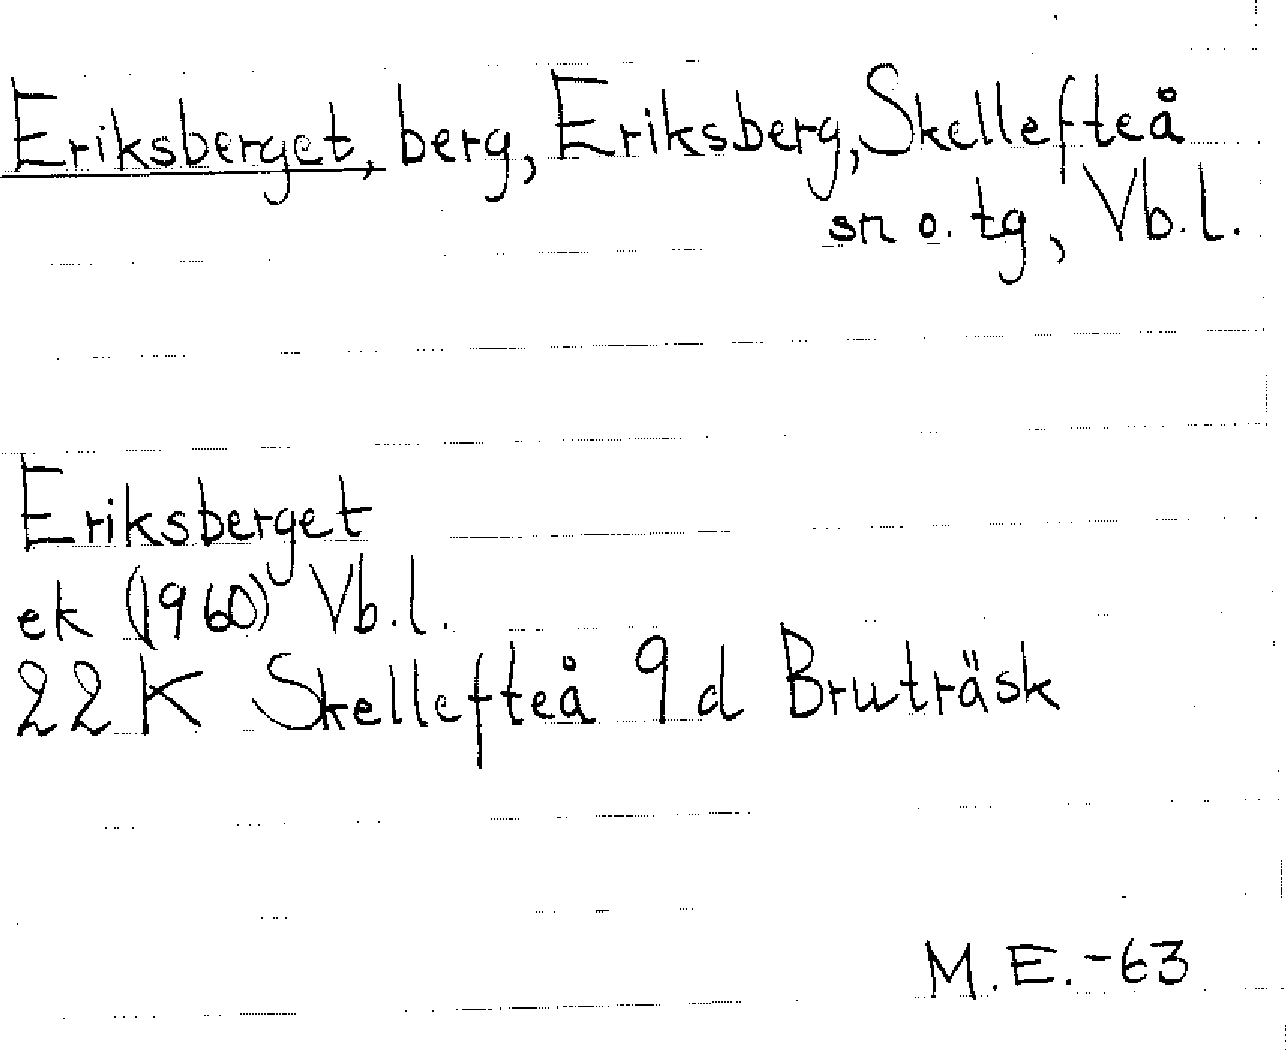 Eriksberget, berg, Eriksberg, Skellefteå
sn o. tg, Vb.l.
Eriksberget
ek (1960) Vb.l.
22 K Skellefteå 9 d Bruträsk
M.E.-63